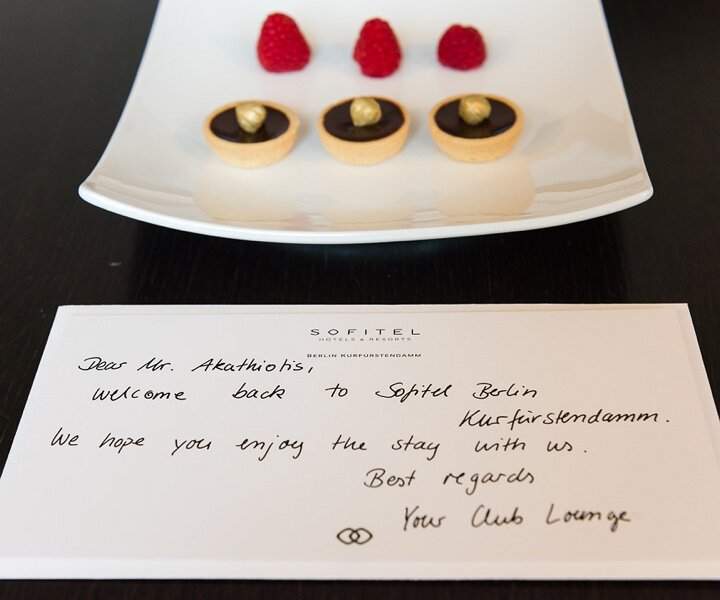 SOFITEL
HOTELS & RESORTS
BERLIN KURFÜRSTENDAMM
Dear Mr. Akathiotis,
welcome back to Sofitel Berlin
Kurfürstendamm.
We hope you enjoy the stay with us.
Best regards
Your Club Lounge